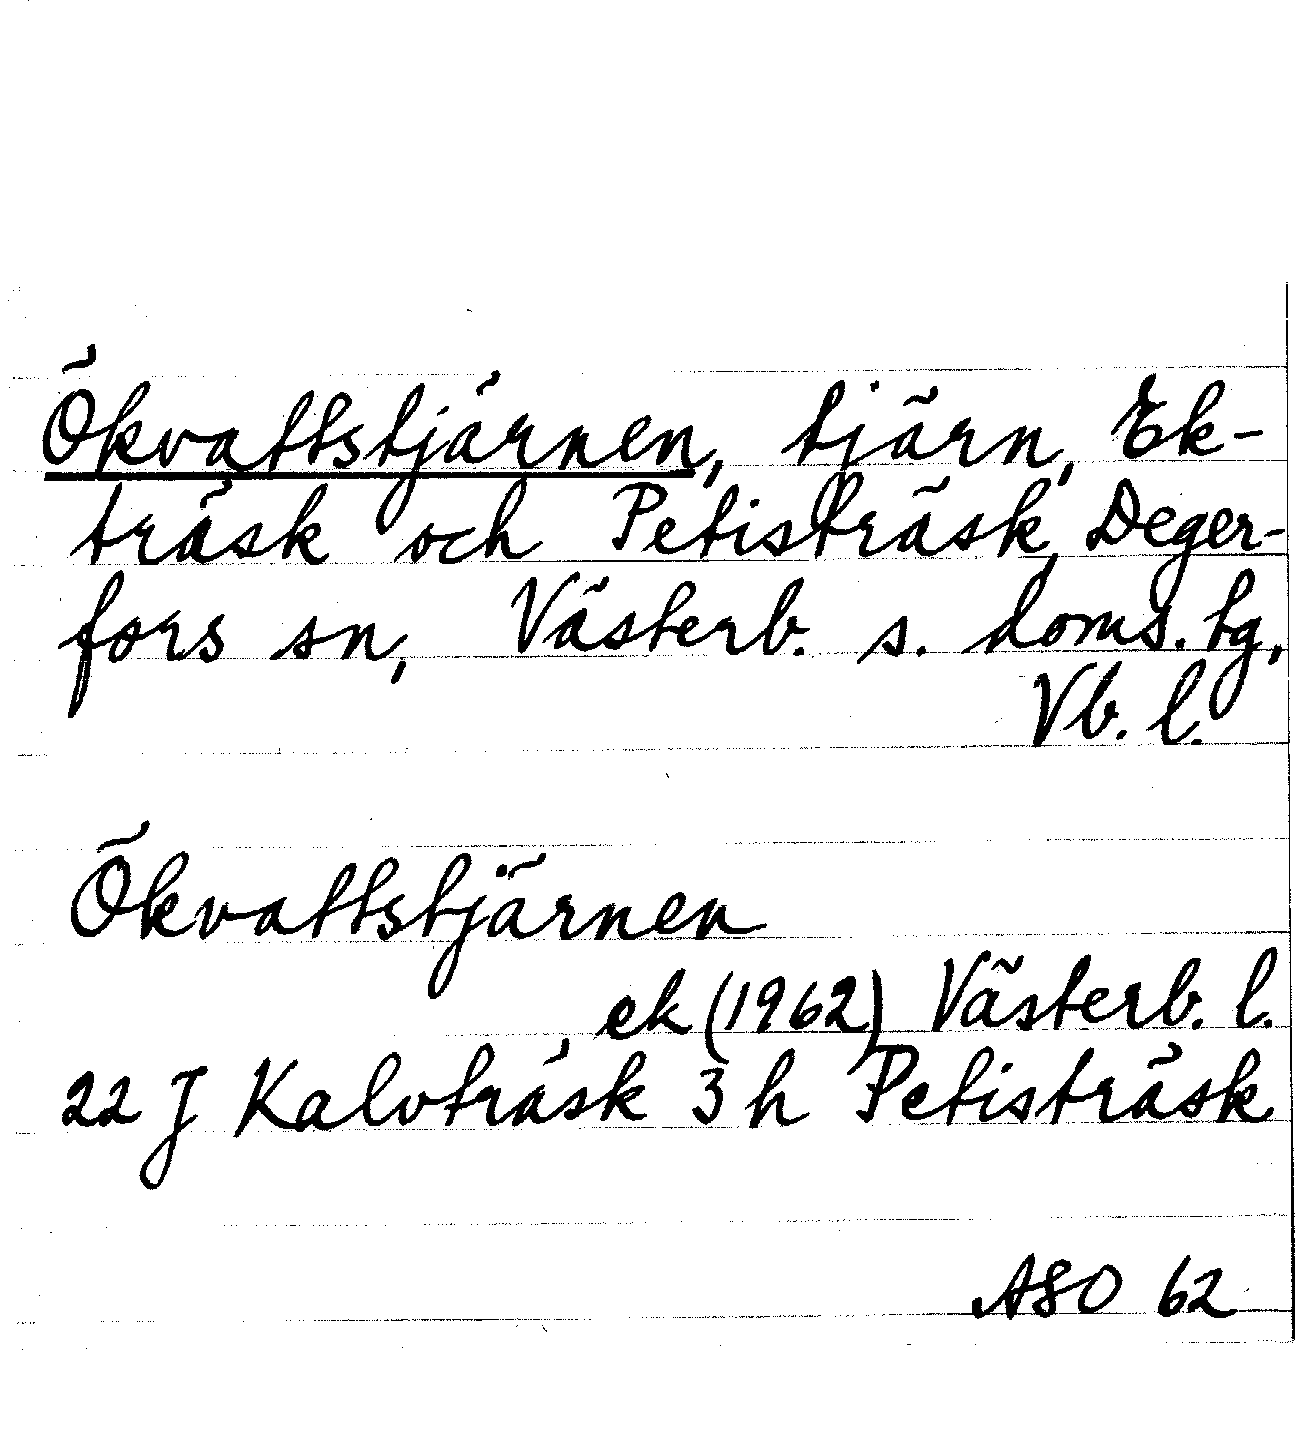 Ökvattstjärnen, tjärn, Ek-
träsk och Petisträsk, Deger-
fors sn, Västerb. s. doms. tg,
Vb. l.
Ökvattstjärnen
, ek (1962) Västerb. l.
22 J Kalvträsk 3 h Petisträsk
ASO 62